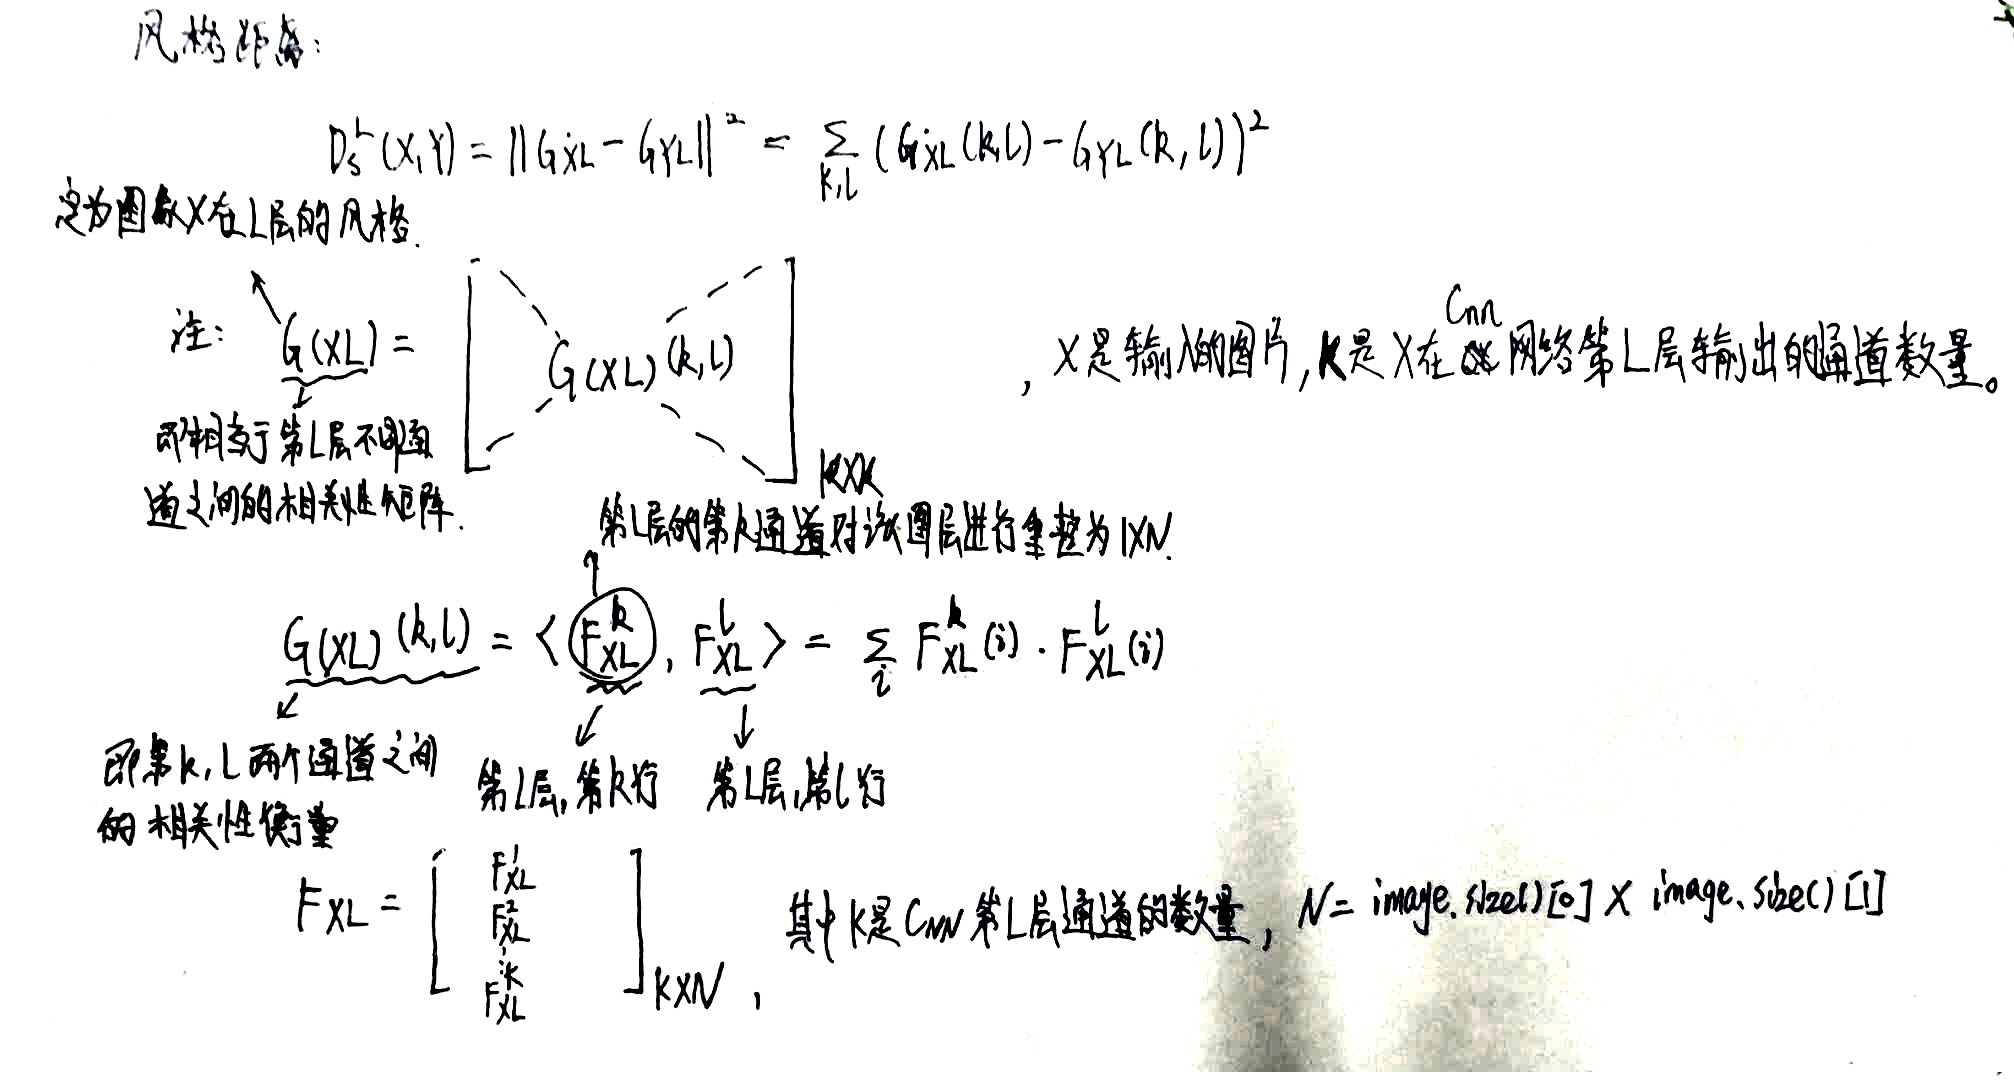 风格距离:
D_S^L(X,Y) = ||G_XL - G_YL||² = Σ_{k,l} (G_XL(k,l) - G_YL(k,l))²
定为图象X在L层的风格.
注: G(XL) = [ G(XL)(k,l) ] K×K , X是输入的图片, K是X在Cnn网络第L层输出的通道数量。
即相当于第L层不同通
道之间的相关性矩阵.
第L层的第k通道对该图层进行重整为1×N.
G(XL)(k,l) = < F_XL^k , F_XL^l > = Σ_i F_XL^k(i) · F_XL^l(i)
即第k, l两个通道之间
的相关性衡量
第L层,第k行 第L层,第l行
F_XL = [ F_XL^1 F_XL^2 ⋮ F_XL^k ] K×N , 其中K是CNN第L层通道的数量, N = image.size()[0] × image.size()[1]